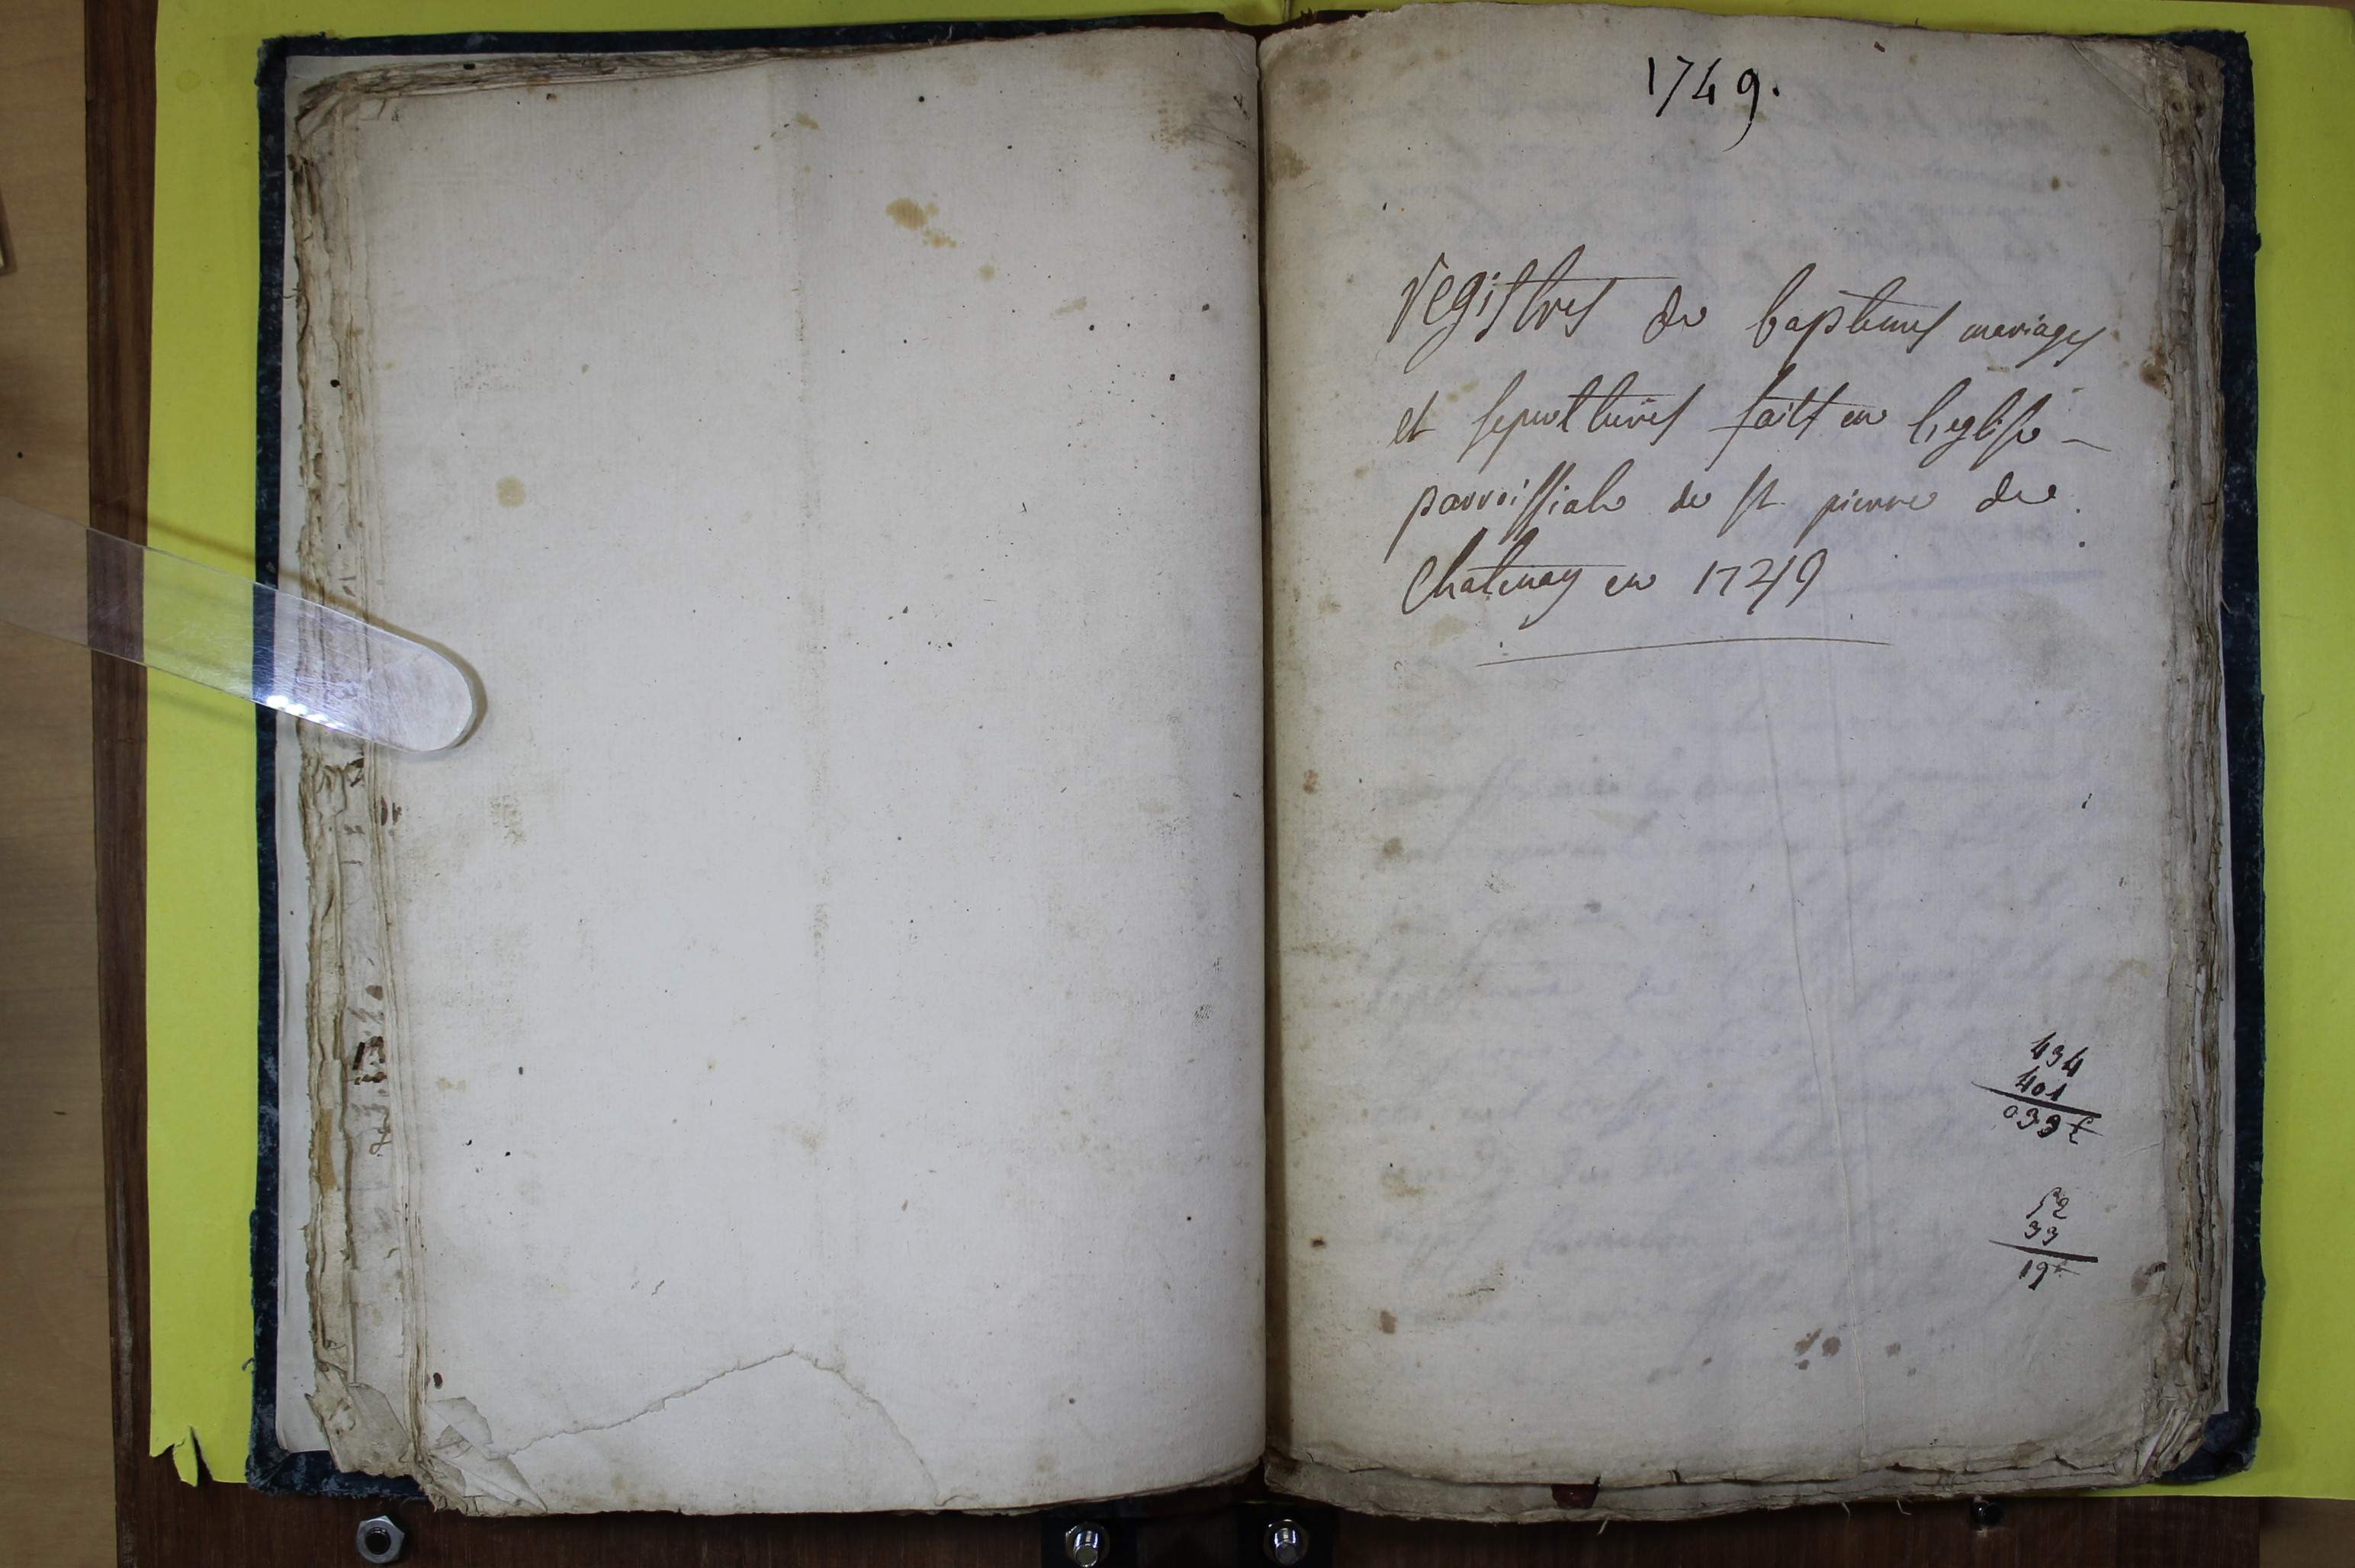 1749.
registres de baptemes mariages
et sepultures fait en l'eglise
parroissiale de st pierre de
Chatenay en 1749
434
401
033
52
33
19